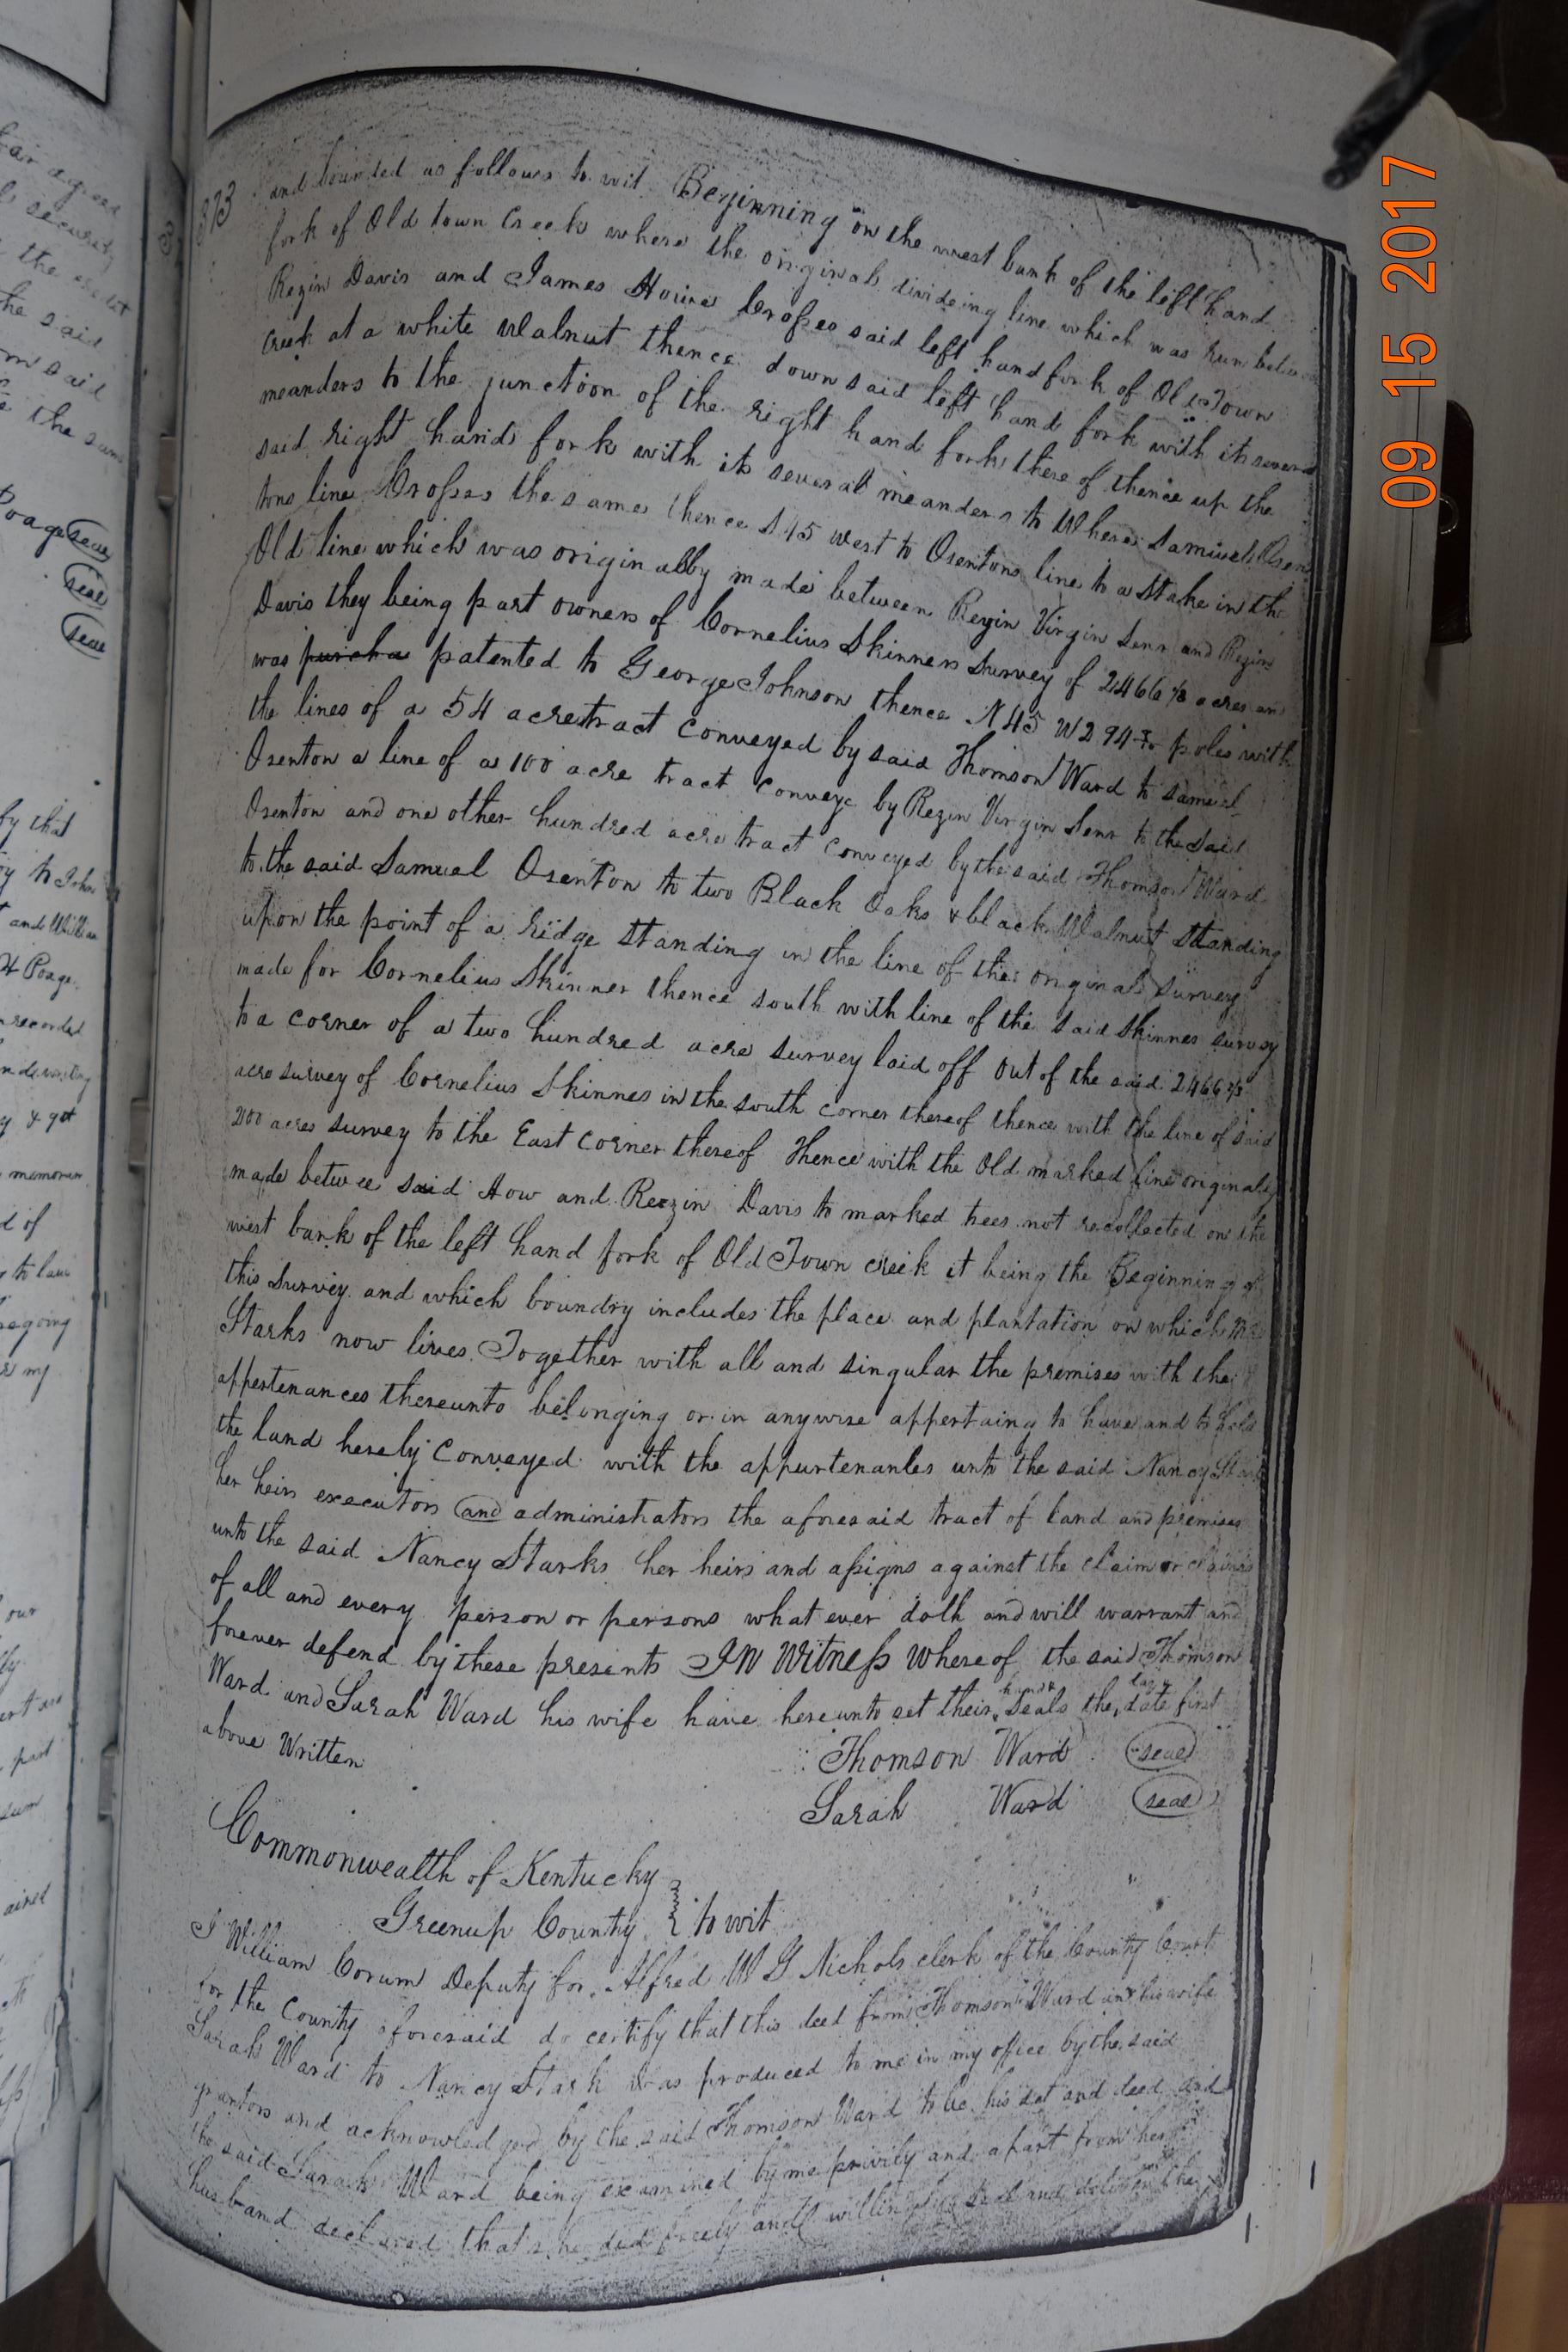 373
and bounded as follows to wit Beginning on the west bank of the left hand
fork of Old town Creek where the original divideing line which was run between
Rezin Davis and James Howe Crosses said left hand fork of Old Town
Creek at a white Walnut thence down said left hand fork with its several
meanders to the junction of the right hand fork there of thence up the
said right hand fork with its several meanders to Where Samuel Osen
tons line Crosses the same thence S 45 west to Osentons line to a Stake in the
Old line which was originally made between Rezin Virgin Senr and Rezin
Davis they being part owners of Cornelius Skinners Survey of 2466⅔ acres and
was purcha patented to George Johnson thence N 45 W 294 poles with
the lines of a 54 acre tract conveyed by said Thomson Ward to Samuel
Osenton a line of a 100 acre tract conveye by Rezin Virgin Senr to the said
Osenton and one other hundred acre tract conveyed by the said Thomson Ward
to the said Samuel Osenton to two Black Oaks & black Walnut standing
upon the point of a ridge standing in the line of the original survey
made for Cornelius Skinner thence south with line of the said Skinnes survey
to a corner of a two hundred acre survey laid off out of the said 2466⅔
acre survey of Cornelius Skinnes in the south corner thereof thence with the line of said
200 acres survey to the East corner thereof Thence with the Old marked line originaly
made betwee said How and Rezin Davis to marked trees not recollected on the
west bank of the left hand fork of Old Town creek it being the Beginning of
this Survey and which boundry includes the place and plantation on which Mrs
Starks now lives. Together with all and singular the premises with the
appertenances thereunto belonging or in anywise appertaing to have and to hold
the land hereby Conveyed with the appurtenantes unto the said Nancy Stark
her heirs executors and administrators the aforesaid tract of land and premises
unto the said Nancy Starks her heirs and assigns against the claim or claims
of all and every person or persons what ever doth and will warrant and
forever defend by these presents In Witness Where of the said Thomson
Ward and Sarah Ward his wife have hereunto set their hands Seals the day date first
above Written
Thomson Ward seal
Sarah Ward seal
Commonwealth of Kentucky
Greenup County to wit
I William Corum Deputy for Alfred W G Nichols clerk of the County Court
for the County foresaid do certify that this deed from Thomson Ward and his wife
Sarah Ward to Nancy Stark was produced to me in my office by the said
grantors and acknowledged by the said Thomson Ward to be his act and deed and
the said Sarah Ward being examined by me privily and apart from her
husband declared that she did freely and willingly seal and deliver the
09 15 2017